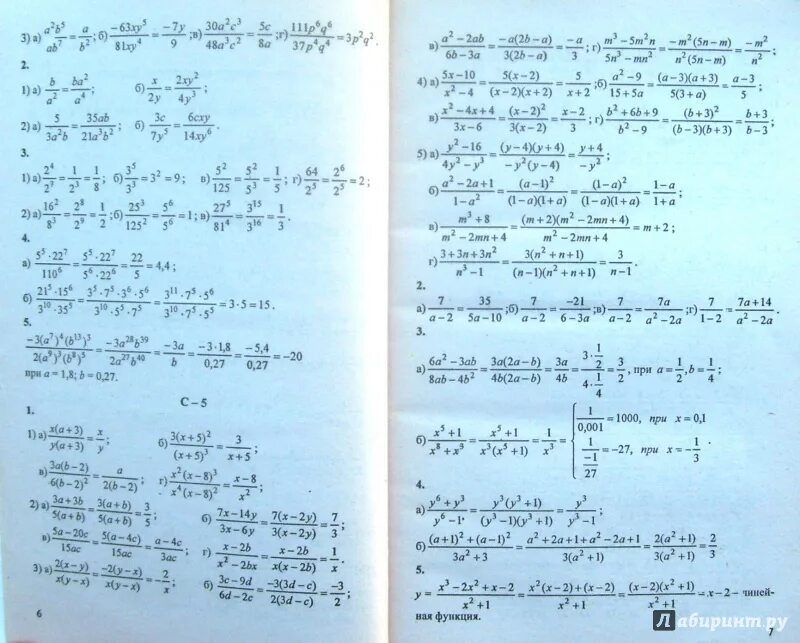 3) а) a²b⁵/ab⁷ = a/b²; б) −63xy⁵/81xy⁴ = −7y/9; в) 30a²c³/48a³c² = 5c/8a; г) 111p⁶q⁶/37p⁴q⁴ = 3p²q².
2.
1) а) b/a² = ba²/a⁴; б) x/2y = 2xy²/4y³;
2) а) 5/3a²b = 35ab/21a³b²; б) 3c/7y⁵ = 6cxy/14xy⁶;
3.
1) а) 2⁴/2⁷ = 1/2³ = 1/8; б) 3⁵/3³ = 3² = 9; в) 5²/125 = 5²/5³ = 1/5; г) 64/2⁵ = 2⁶/2⁵ = 2;
2) а) 16²/8³ = 2⁸/2⁹ = 1/2; б) 25³/5⁶ = 5⁶/5⁶ = 1; в) 27⁵/81⁴ = 3¹⁵/3¹⁶ = 1/3.
4.
а) 5⁵·22⁷/110⁶ = 5⁵·22⁷/5⁶·22⁶ = 22/5 = 4,4;
б) 21⁵·15⁶/3¹⁰·35⁵ = 3⁵·7⁵·3⁶·5⁶/3¹⁰·5⁵·7⁵ = 3¹¹·7⁵·5⁶/3¹⁰·5⁵·7⁵ = 3·5 = 15.
5.
−3(a⁷)⁴(b¹³)³/2(a⁹)³(b⁸)⁵ = −3a²⁸b³⁹/2a²⁷b⁴⁰ = −3a/b = −3·1,8/0,27 = −5,4/0,27 = −20
при a = 1,8; b = 0,27.
С – 5
1.
1) а) x(a+3)/y(a+3) = x/y; б) 3(x+5)²/(x+5)³ = 3/x+5;
в) 3a(b−2)/6(b−2)² = a/2(b−2); г) x²(x−8)³/x⁴(x−8)² = x−8/x²;
2) а) 3a+3b/5(a+b) = 3(a+b)/5(a+b) = 3/5; б) 7x−14y/3x−6y = 7(x−2y)/3(x−2y) = 7/3;
в) 5a−20c/15ac = 5(a−4c)/15ac = a−4c/3ac; г) x−2b/x²−2bx = x−2b/x(x−2b) = 1/x;
3) а) 2(x−y)/x(y−x) = −2(y−x)/x(y−x) = −2/x; б) 3c−9d/6d−2c = −3(3d−c)/2(3d−c) = −3/2;
6
в) a²−2ab/6b−3a = −a(2b−a)/3(2b−a) = −a/3; г) m³−5m²n/5n³−mn² = −m²(5n−m)/n²(5n−m) = −m²/n².
4) а) 5x−10/x²−4 = 5(x−2)/(x−2)(x+2) = 5/x+2; б) a²−9/15+5a = (a−3)(a+3)/5(3+a) = a−3/5;
в) x²−4x+4/3x−6 = (x−2)²/3(x−2) = x−2/3; г) b²+6b+9/b²−9 = (b+3)²/(b−3)(b+3) = b+3/b−3;
5) а) y²−16/4y²−y³ = (y−4)(y+4)/−y²(y−4) = y+4/−y²;
б) a²−2a+1/1−a² = (a−1)²/(1−a)(1+a) = (1−a)²/(1−a)(1+a) = 1−a/1+a;
в) m³+8/m²−2mn+4 = (m+2)(m²−2mn+4)/m²−2mn+4 = m+2;
г) 3+3n+3n²/n³−1 = 3(n²+n+1)/(n−1)(n²+n+1) = 3/n−1.
2.
а) 7/a−2 = 35/5a−10; б) 7/a−2 = −21/6−3a; в) 7/a−2 = 7a/a²−2a; г) 7/1−2 = 7a+14/a²−2a.
3.
а) 6a²−3ab/8ab−4b² = 3a(2a−b)/4b(2a−b) = 3a/4b = 3·1/2/4·1/4 = 3/2, при a = 1/2, b = 1/4;
б) x⁵+1/x⁸+x³ = x⁵+1/x³(x⁵+1) = 1/x³ = { 1/0,001 = 1000, при x = 0,1
1/−1/27 = −27, при x = −1/3
4.
а) y⁶+y³/y⁶−1 = y³(y³+1)/(y³−1)(y³+1) = y³/y³−1;
б) (a+1)²+(a−1)²/3a²+3 = a²+2a+1+a²−2a+1/3(a²+1) = 2(a²+1)/3(a²+1) = 2/3
5.
y = x³−2x²+x−2/x²+1 = x²(x−2)+(x−2)/x²+1 = (x−2)(x²+1)/x²+1 = x−2 – линей-
ная функция.
7
Лабиринт.ру